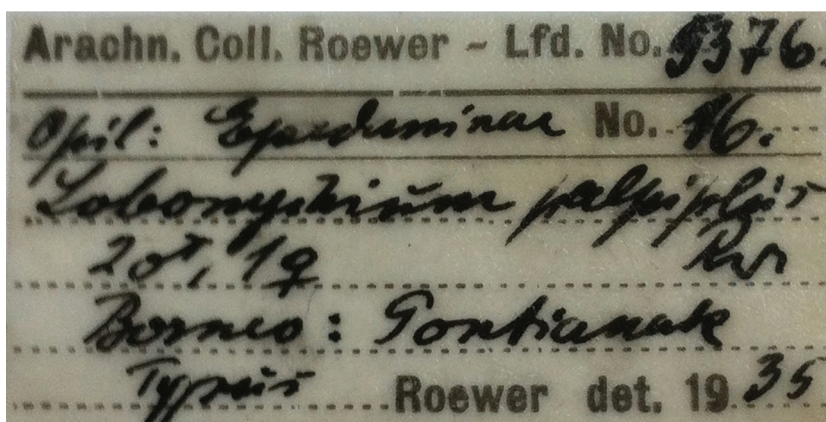 Arachn. Coll. Roewer - Lfd. No. 5376.
Opil: Epedaninae No. 16.
Lobonychium palpiplus
2♂, 1♀ Rwr
Borneo: Pontianak
Typus Roewer det. 1935